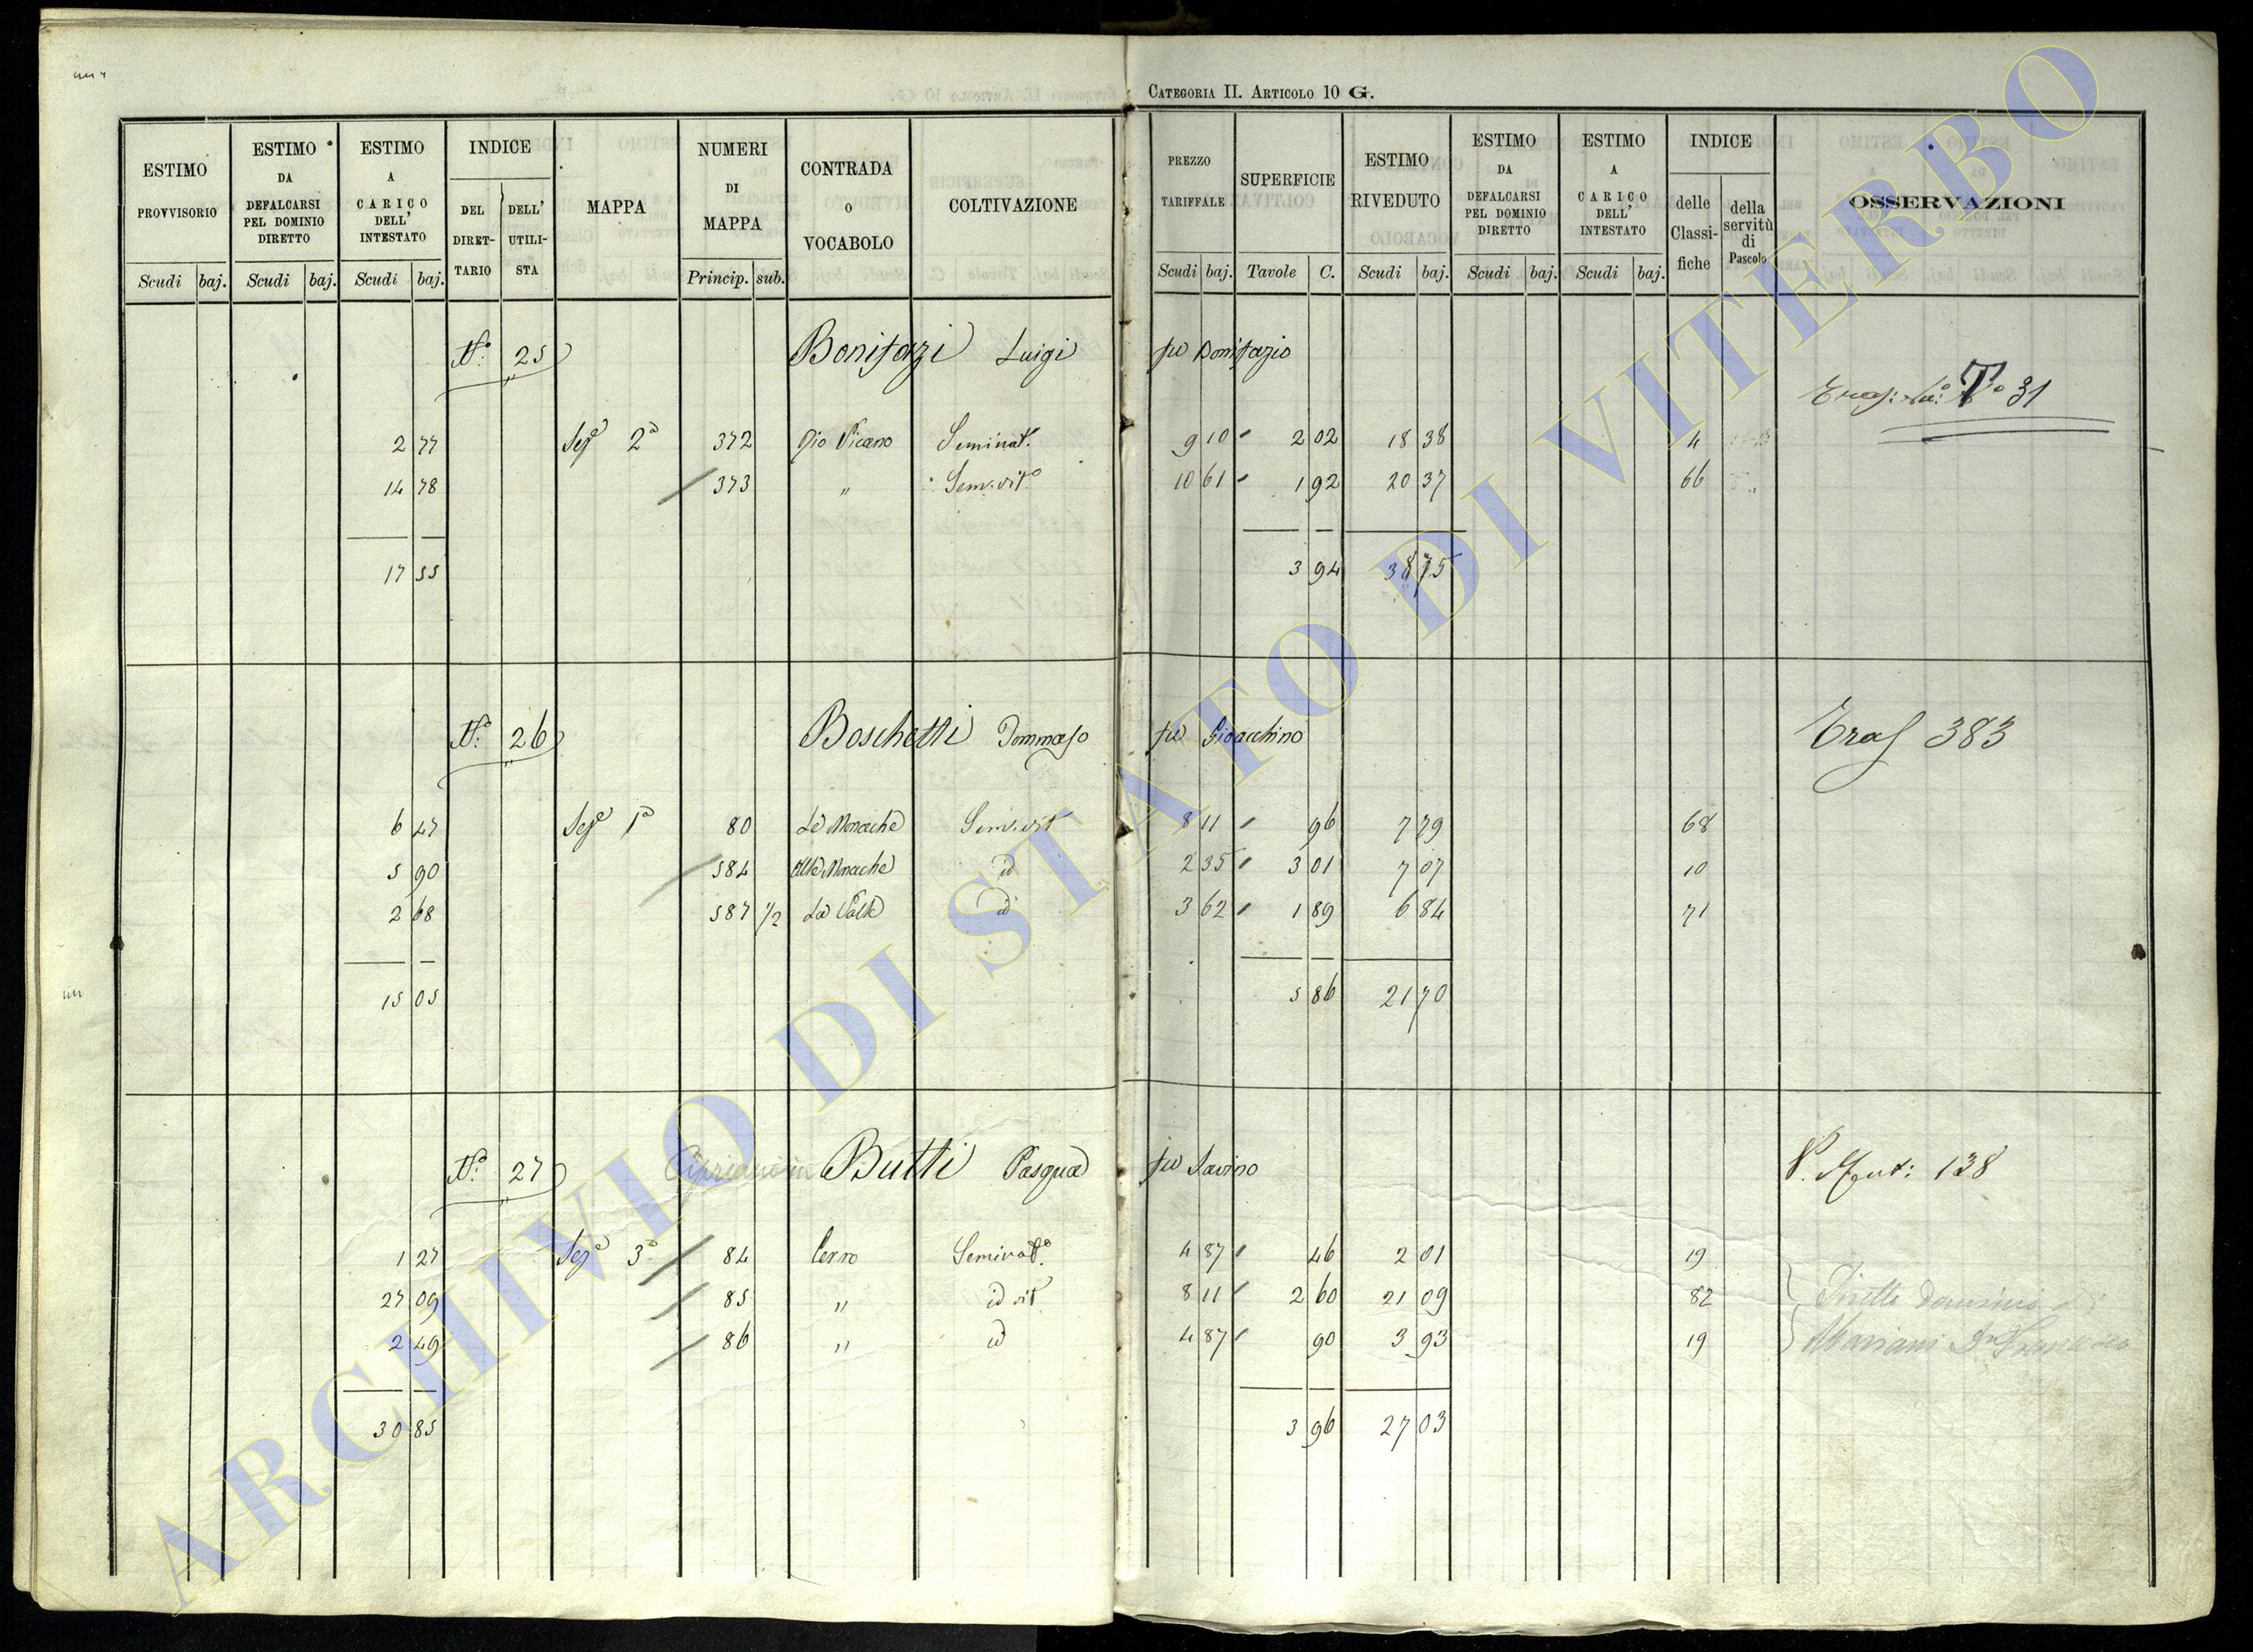 CATEGORIA II. ARTICOLO 10 G.
ESTIMO PROVVISORIO Scudi baj. ESTIMO DA DEFALCARSI PEL DOMINIO DIRETTO Scudi baj. ESTIMO A CARICO DELL' INTESTATO Scudi baj. INDICE DEL DIRETTARIO DELL' UTILISTA MAPPA NUMERI DI MAPPA Princip. sub. CONTRADA O VOCABOLO COLTIVAZIONE PREZZO TARIFFALE Scudi baj. SUPERFICIE Tavole C. ESTIMO RIVEDUTO Scudi baj. ESTIMO DA DEFALCARSI PEL DOMINIO DIRETTO Scudi baj. ESTIMO A CARICO DELL' INTESTATO Scudi baj. INDICE delle Classifiche della servitù di Pascolo OSSERVAZIONI
N.° 25 Bonifazi Luigi fu Bonifazio
31
2 77 Sez.e 2a 372 Pio Piceno Seminat.° 9 10 2 02 18 38 4
14 78 373 " Sem. vit.° 10 61 1 92 20 37 66
17 55 3 94 38 75
N.° 26 Boschetti Tommaso fu Gioacchino Tras 383
6 47 Sez.e 1a 80 Le Monache Sem. vit 8 11 96 7 79 68
5 90 584 Alle Monache id 2 35 3 01 7 07 10
2 68 587 1/2 La Valle id 3 62 1 89 6 84 71
15 05 5 86 21 70
N.° 27 Butti Pasqua fu Savino 138
1 27 Sez.e 3a 84 Cerro Seminat.° 4 87 46 2 01 19
27 09 85 " id vit 8 11 2 60 21 09 82 Diretto dominio di
2 49 86 " id 4 87 90 3 93 19 Mariani
30 85 3 96 27 03
ARCHIVIO DI STATO DI VITERBO